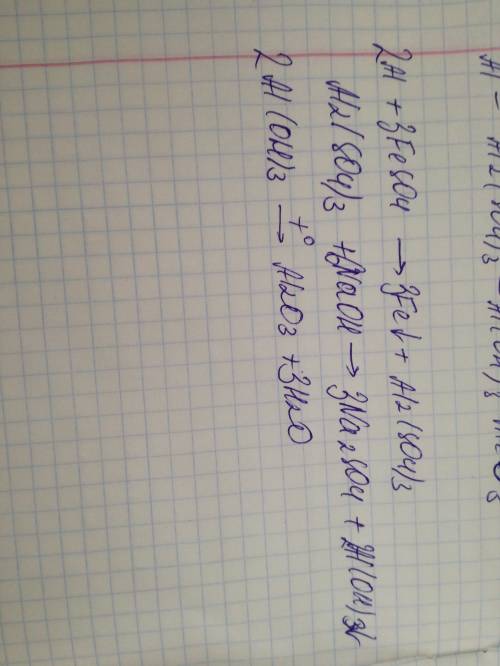 Al – Al2(SO4)3 – Al(OH)3 –
2Al + 3FeSO4 → 3Fe↓ + Al2(SO4)3
Al2(SO4)3 + 6NaOH → 3Na2SO4 + 2Al(OH)3↓
2Al(OH)3 t° → Al2O3 + 3H2O